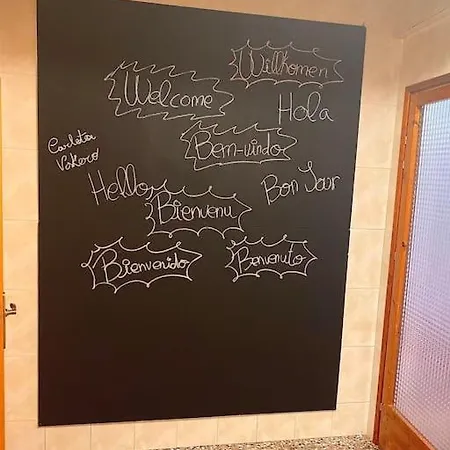 Willkomen
Welcome
Hola
Bem-vindo
Carleta
Vakero
Hello
Bon Jour
Bienvenu
Bienvenido
Benvenuto